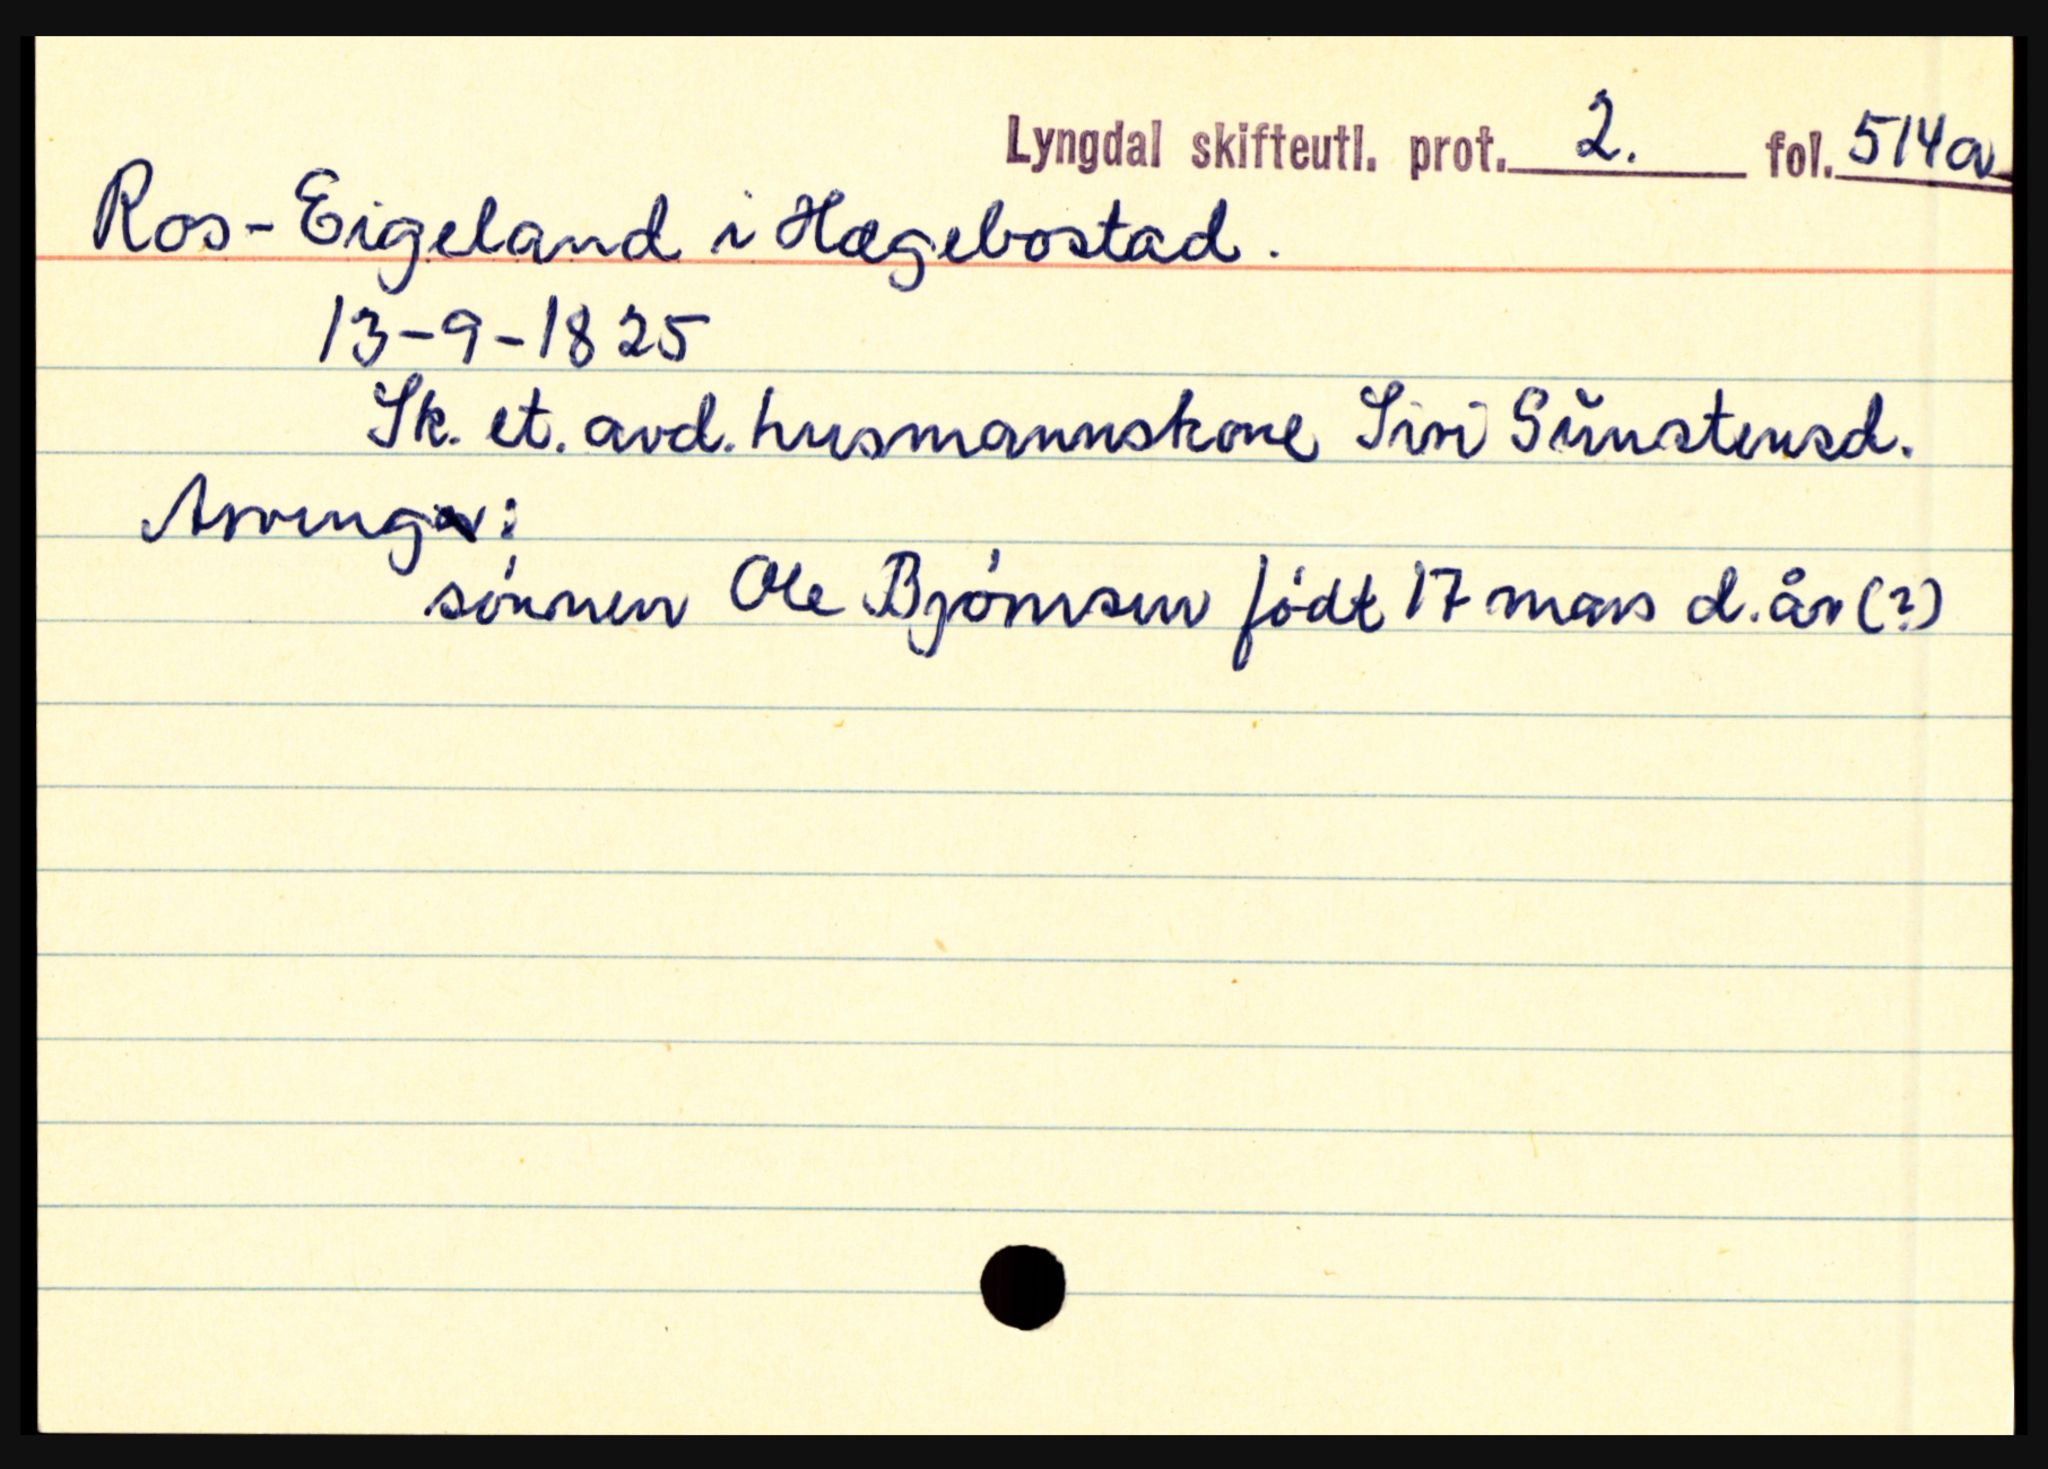 Lyngdal skifteutl. prot. 2. fol. 514a
Ros-Eigeland i Hægebostad.
13-9-1825
Sk. et. avd. husmannskone Siri Sŭnstensd.
Arving:
sønnen Ole Bjørnsen født 17 mars d. år (?)